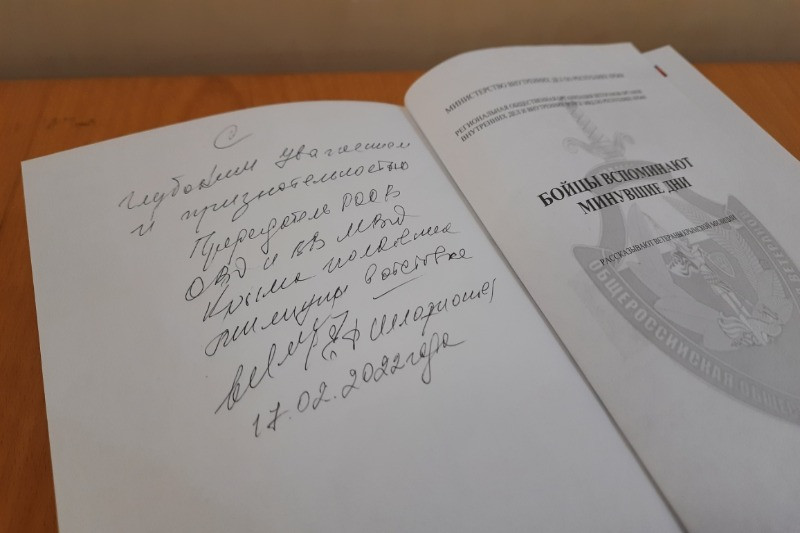 С
глубоким уважением
и признательностью
Председатель РООВ
ОВД и ВВ МВД
Крыма полковник
милиции в отставке
17.02.2022 года
МИНИСТЕРСТВО ВНУТРЕННИХ ДЕЛ ПО РЕСПУБЛИКЕ КРЫМ
РЕГИОНАЛЬНАЯ ОБЩЕСТВЕННАЯ ОРГАНИЗАЦИЯ ВЕТЕРАНОВ ОРГАНОВ
ВНУТРЕННИХ ДЕЛ И ВНУТРЕННИХ ВОЙСК МВД ПО РЕСПУБЛИКЕ КРЫМ
БОЙЦЫ ВСПОМИНАЮТ
МИНУВШИЕ ДНИ
РАССКАЗЫВАЮТ ВЕТЕРАНЫ КРЫМСКОЙ МИЛИЦИИ
ОБЩЕРОССИЙСКАЯ